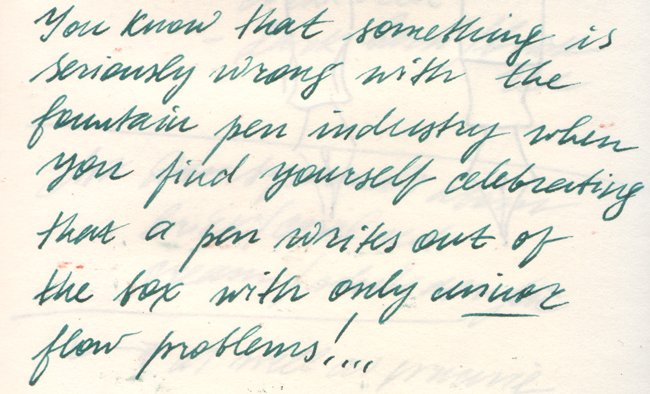 You know that something is
seriously wrong with the
fountain pen industry when
you find yourself celebrating
that a pen writes out of
the box with only minor
flow problems!...